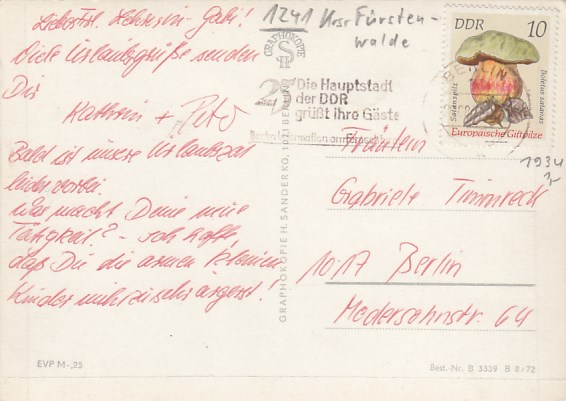 Liebstes Lehrerin-Gabi!
Viele Urlaubsgrüße senden
Dir
Kathrin + Peter
Bald ist unsere Urlaubszeit
leider vorbei.
Was macht Deine neue
Tätigkeit? - ich hoffe,
daß Du die armen kleinen
Kinder nicht zu sehr ärgerst!
EVP M-,25
1241 Krsr Fürsten-
walde
GRAPHOKOPIE
Die Hauptstadt
der DDR
grüßt ihre Gäste
GRAPHOKOPIE H. SANDERKO, 1071 BERLIN
DDR 10
BERLIN
Satanspilz
Boletus satanas
Europäische Giftpilze
1934
Fräulein
Gabriele Timmreck
1017 Berlin
Modersohnstr. 64
Best.-Nr. B 3339 B 8/72